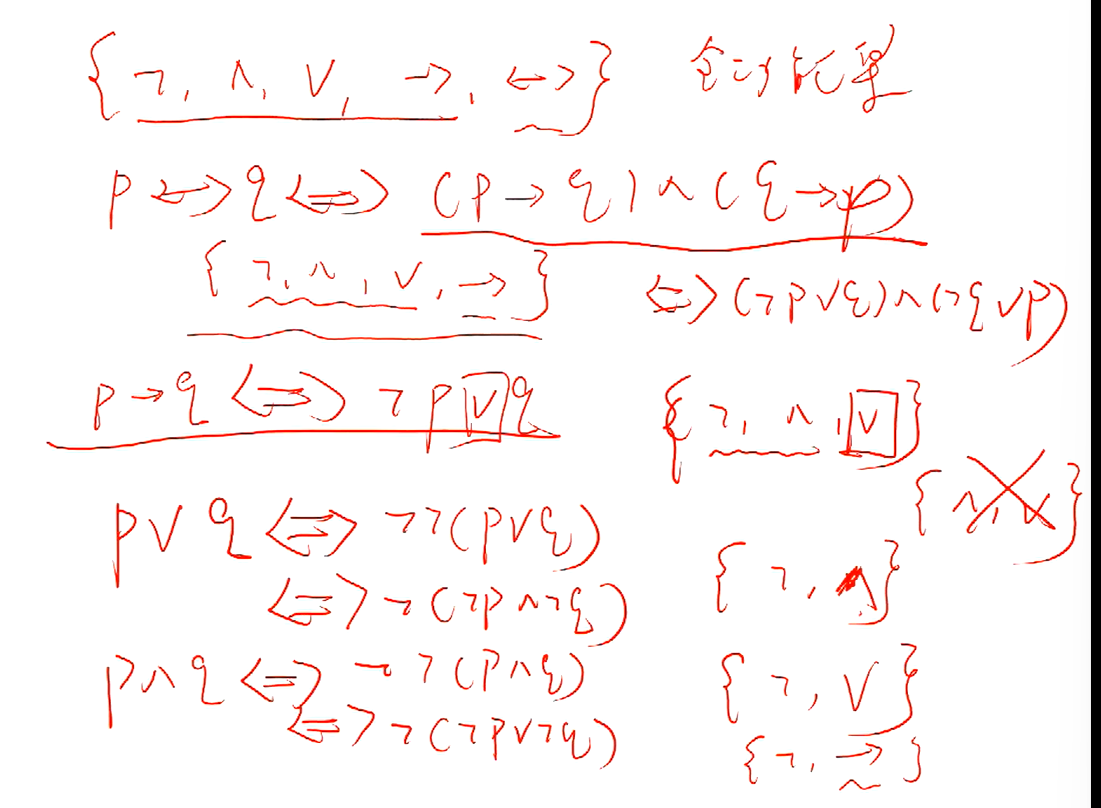 {¬, ∧, ∨, →, ↔} 全功能集
p ↔ q ⇔ (p → q) ∧ (q → p)
{¬, ∧, ∨, →} ⇔ (¬p∨q)∧(¬q∨p)
p → q ⇔ ¬p∨q {¬, ∧, ∨}
{∧, ∨}
p∨q ⇔ ¬¬(p∨q)
{¬, ∧}
⇔ ¬(¬p∧¬q)
p∧q ⇔ ¬¬(p∧q) {¬, ∨}
⇔ ¬(¬p∨¬q) {¬, →}